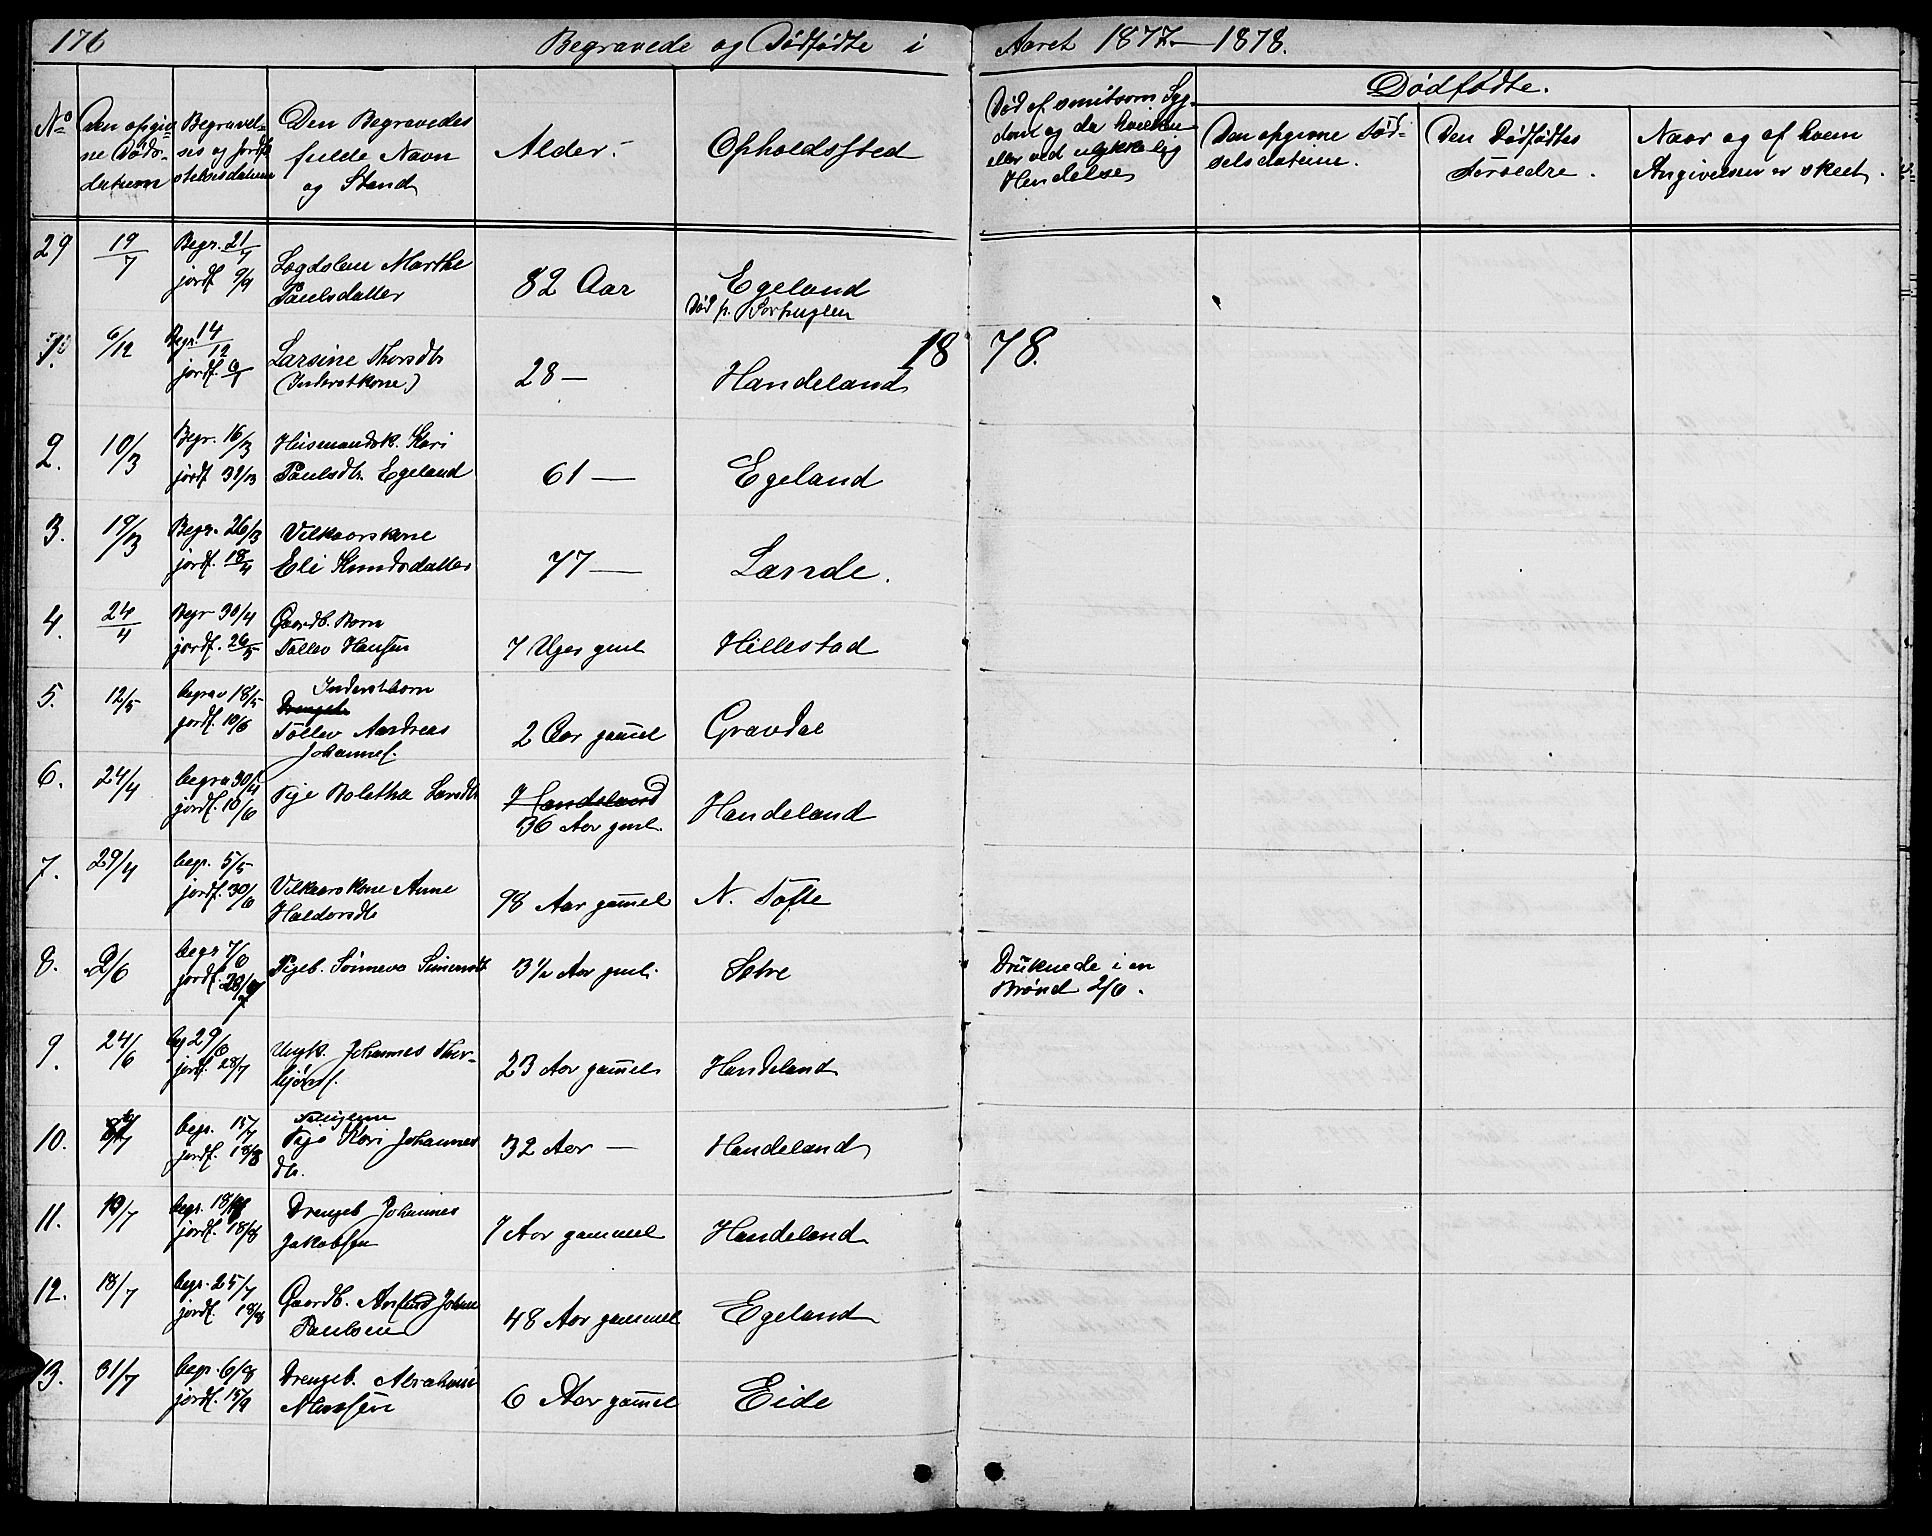 176 Begravede og Dødfødte i Aaret 1877 — 1878.
No
Den opgivne Døds-datum
Begravelses og Jordfæstelsesdatum
Den Begravedes fulde Navn og Stand
Alder.
Opholdssted
Død af smitsom Sygdom og da hvilken eller ved ulykkelig Hendelse
Dødfødte.
Den opgivne Fødselsdatum.
Den Dødfødtes Forældre.
Naar og af hvem Angivelsen er skeet.
29 19/7 Begr. 21/7 Marthe 82 Aar Egeland
jordf. 9/9 Paulsdatter Død p.
1878.
1. 6/12 Begr. 14/12 Larsine Thorsdtr 28 — Handeland
jordf. (Inderstkone)
2. 10/3 Begr. 16/3 Husmandsk. Kari 61 — Egeland
jordf 31/3 Paulsdtr. Egeland
3. 19/3 Begr. 26/3 Vilkaarskone 77 — Lande.
jordf. 18/4 Eli Knudsdatter
4. 24/4 Begr 30/4 Gaardb. Barn 7 Uger gml Hillestad
jordf. 26/5 Tallev Hansen
5. 12/5 begrav 18/5 Inderstbarn 2 Aar gammel Gravdal
jordf. 10/6 Tollev Andreas
Johannes.
6. 24/4 begra 30/4 Pige Boletha Larsdtr Handeland Handeland
jordf. 10/6 36 Aar gml.
7. 29/4 begr. 5/5 Vilkaarskone Anne 98 Aar gammel N. Tofte
jordf. 30/6 Haldorsdtr
8. 2/6 begr 7/6 Pigeb. Sønneva 3 1/2 Aar gml. Druknede i en
jordf. 28/7 Brønd 2/6.
9. 24/6 bg 29/6 Ungk. Johannes Thor- 23 Aar gammel Handeland
jordf. 28/7 bjørns.
10. begr. 15/7 Pige Kari Johannes 32 Aar — Handeland
jordf. 18/8 dtr.
11. 10/7 begr. Drengeb Johannes 7 Aar gammel Handeland
jordf. 18/8 Jakobsen
12. 18/7 begr. 25/7 Gaardb. 48 Aar gammel Egeland
jordf. 18/8 Paulsen
13. 31/7 begr. 6/8 Drengeb. Abraham 6 Aar gammel Eide
jordf. 15/9